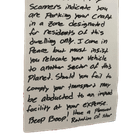 Scanners indicate you
are Parking your craft
in a zone designated
for residents of this
dwelling only. I come in
Peace but must insist you
relocate your Vehicle
to another Sector of this
Planet. Should you fail to
comply your transport may
be abducted to an impound
facility at your expense.
Beep Boop! Have a Pleasant
Rotation of